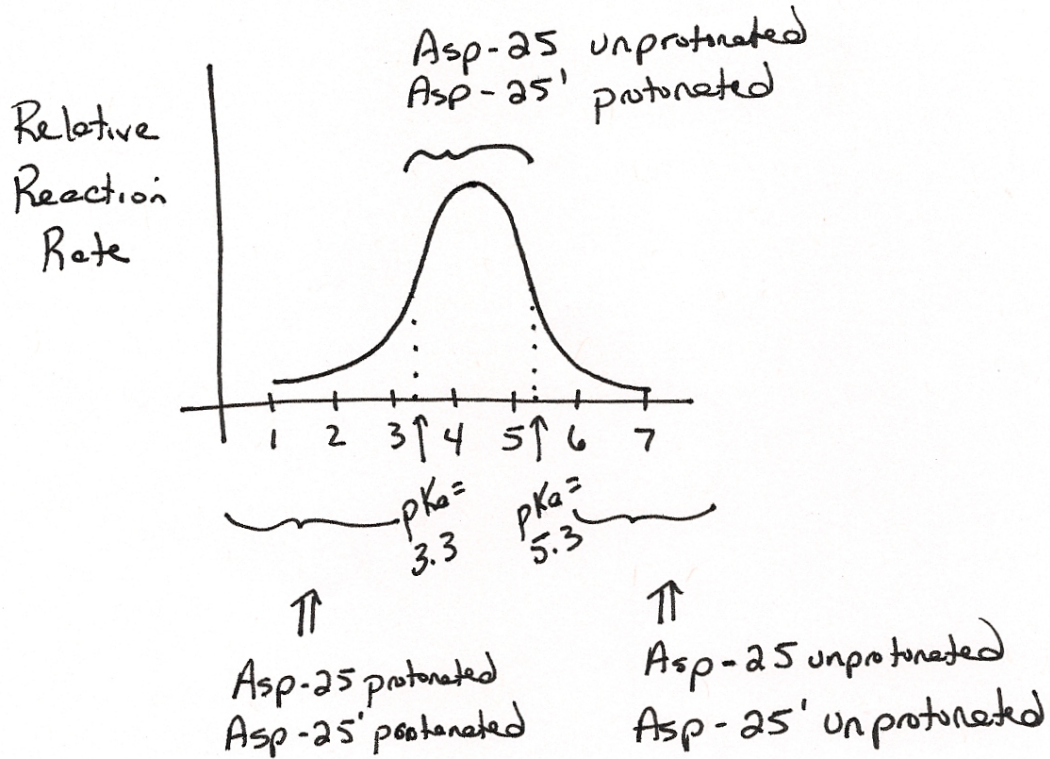 Asp-25 unprotonated
Asp-25' protonated
Relative
Reaction
Rate
1 2 3 ↑ 4 5 ↑ 6 7
pKa=
3.3
pKa=
5.3
⇑
Asp-25 protonated
Asp-25' protonated
⇑
Asp-25 unprotonated
Asp-25' unprotonated